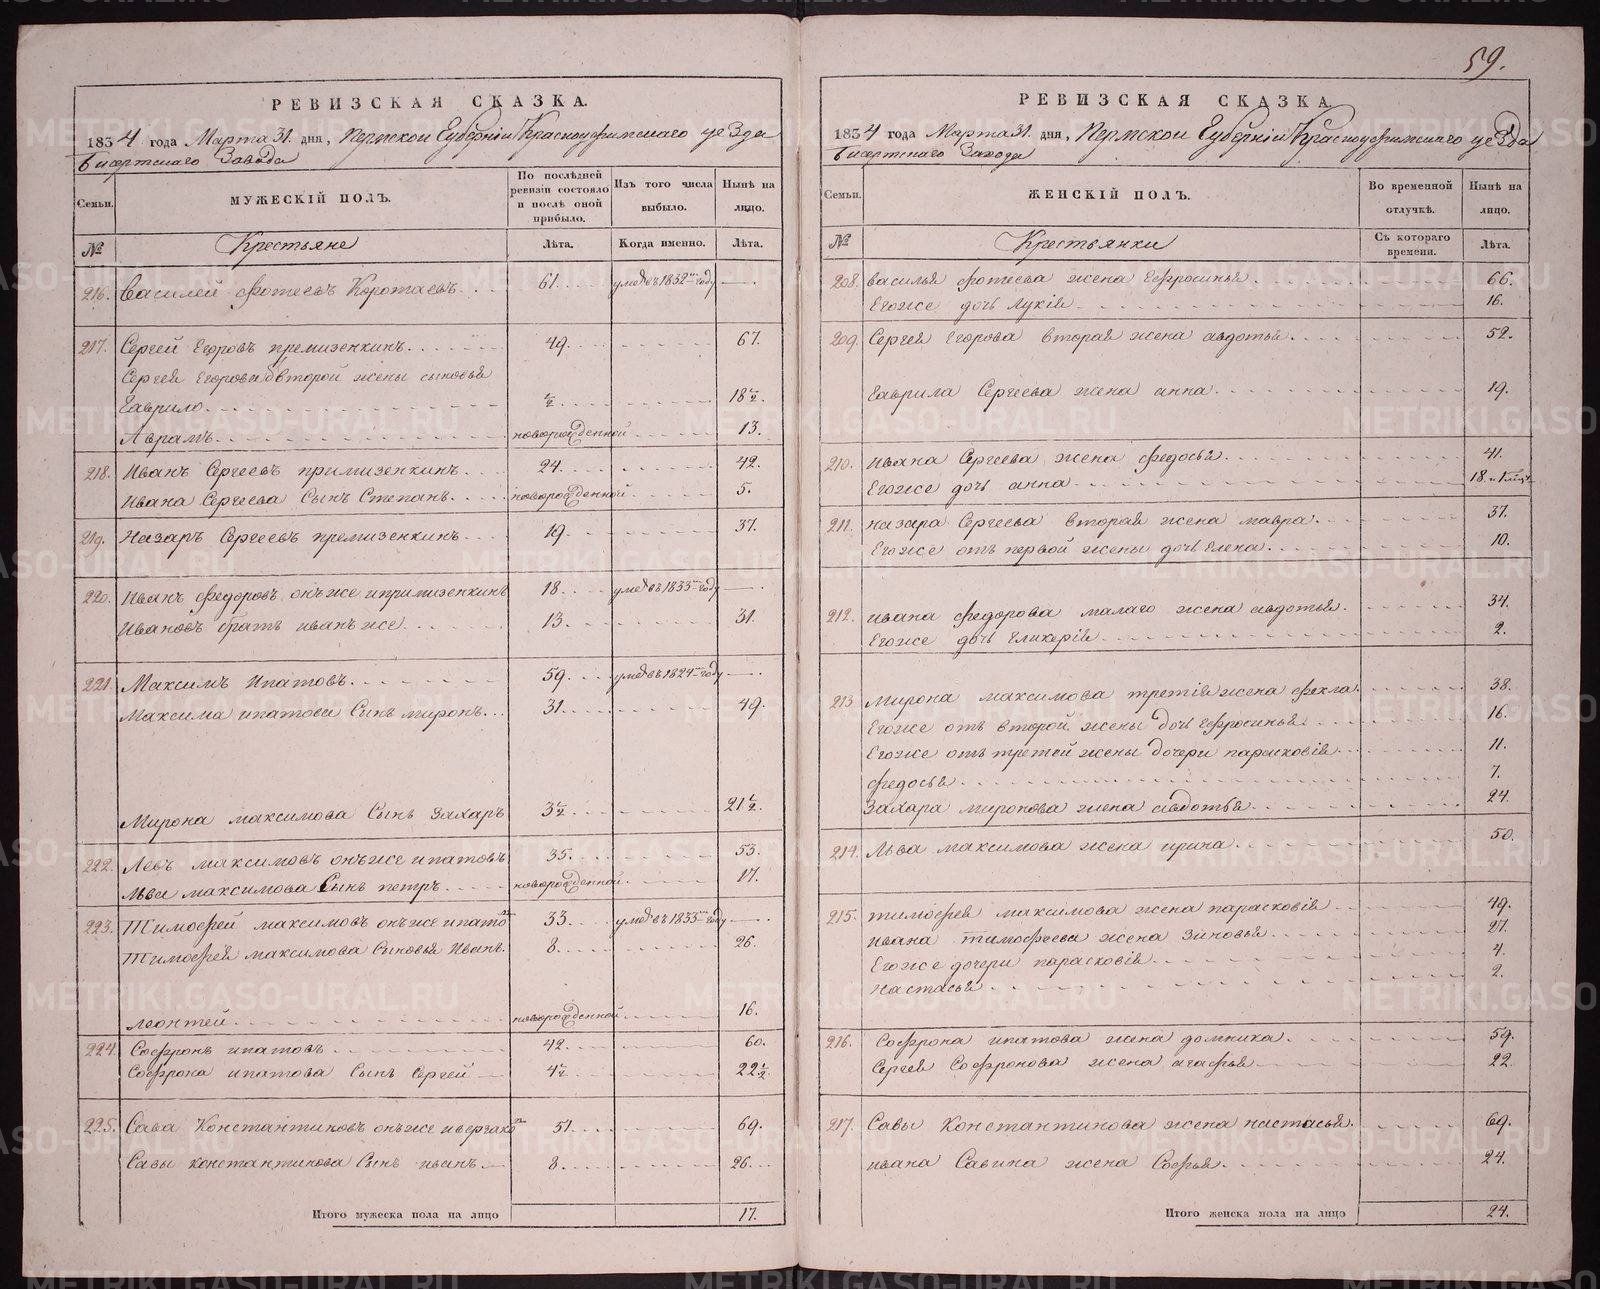 59.
РЕВИЗСКАЯ СКАЗКА.
1834 года Марта 31. дня, Пермской Губерніи Красноуфимскаго уезда
Бисертскаго Завода
Семьи.
МУЖЕСКІЙ ПОЛЪ.
По последней ревизіи состояло и после оной прибыло.
Изъ того числа выбыло.
Ныне на лицо.
№
Крестьяне
Лета.
Когда именно.
Лета.
216. Василей Фотеевъ Коротаевъ. 61. умре въ 1832 м году —
217. Сергей Егоровъ премизенкинъ. 49. 67.
Сергея Егорова от второй жены сыновья
Гаврило. ½ 18½.
Аврамъ. новорожденной 13.
218. Иванъ Сергеевъ примизенкинъ. 24. 42.
Ивана Сергеева Сынъ Степанъ. новорожденной 5.
219. Назаръ Сергеевъ премизенкинъ. 19. 37.
220. Иванъ Федоровъ онъ же ипримизенкинъ 18. умре въ 1833 м году —
Ивановъ братъ иванъ же. 13. 31.
221. Максимъ Ипатовъ. 59. умре въ 1824 м году —
Максима ипатова Сынъ миронъ. 31. 49.
Мирона максимова Сынъ Захаръ 3½ 21½.
222. Левъ максимовъ онъ же ипатовъ 35. 53.
Льва максимова Сынъ петръ. новорожденной. 17.
223. Тимофей максимовъ онъ же ипатовъ 33. умре въ 1833 м году —
Тимофея максимова Сыновья Иванъ. 8. 26.
леонтей новорожденной 16.
224. Софронъ ипатовъ 42. 60.
Софрона ипатова Сынъ Сергей 4½ 22½
225. Сава Константиновъ онъ же иверзаковъ 51. 69.
Савы константинова Сынъ иванъ. 8. 26.
Итого мужеска пола на лицо 17.
РЕВИЗСКАЯ СКАЗКА
1834 года Марта 31. дня, Пермской Губерніи Красноуфимскаго уезда
Бисертскаго Завода
Семьи.
ЖЕНСКІЙ ПОЛЪ.
Во временной отлучкѣ.
Ныне на лицо.
№
Крестьянки
Съ котораго времени.
Лета.
208. Василья фотеева жена Ефросинья 66.
Егоже дочь Лукія 16.
209. Сергея Егорова вторая жена авдотья. 52.
Гаврила Сергеева жена анна. 19.
210. ивана Сергеева жена федосья. 41.
Егоже дочь анна 18.
211. назара Сергеева вторая жена мавра. 37.
Егоже отъ первой жены дочь Елена. 10.
212. ивана федорова малаго жена авдотья. 34.
Егоже дочь Гликерія 2.
213 мирона максимова третія жена фекла. 38.
Егоже отъ второй жены дочь Ефросинья. 16.
Егоже отъ третей жены дочери парасковія 11.
федосья 7.
Захара миронова жена авдотья 24.
214. Льва максимова жена ирина 50.
215. тимофея максимова жена парасковія 49.
ивана тимофеева жена зиновья 27.
Егоже дочери парасковія 4.
настасья 2.
216. Софрона ипатова жена домника. 59.
Сергея Софронова жена агафья 22
217. Савы Константинова жена настасья. 69.
ивана Савина жена Софья. 24.
Итого женска пола на лицо 24.
METRIKI.GASO-URAL.RU